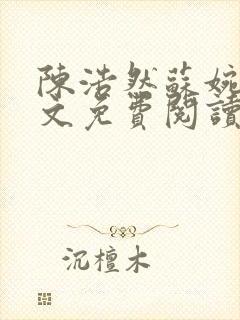 陳浩然蘇婉
文免費閱讀
沉檀木